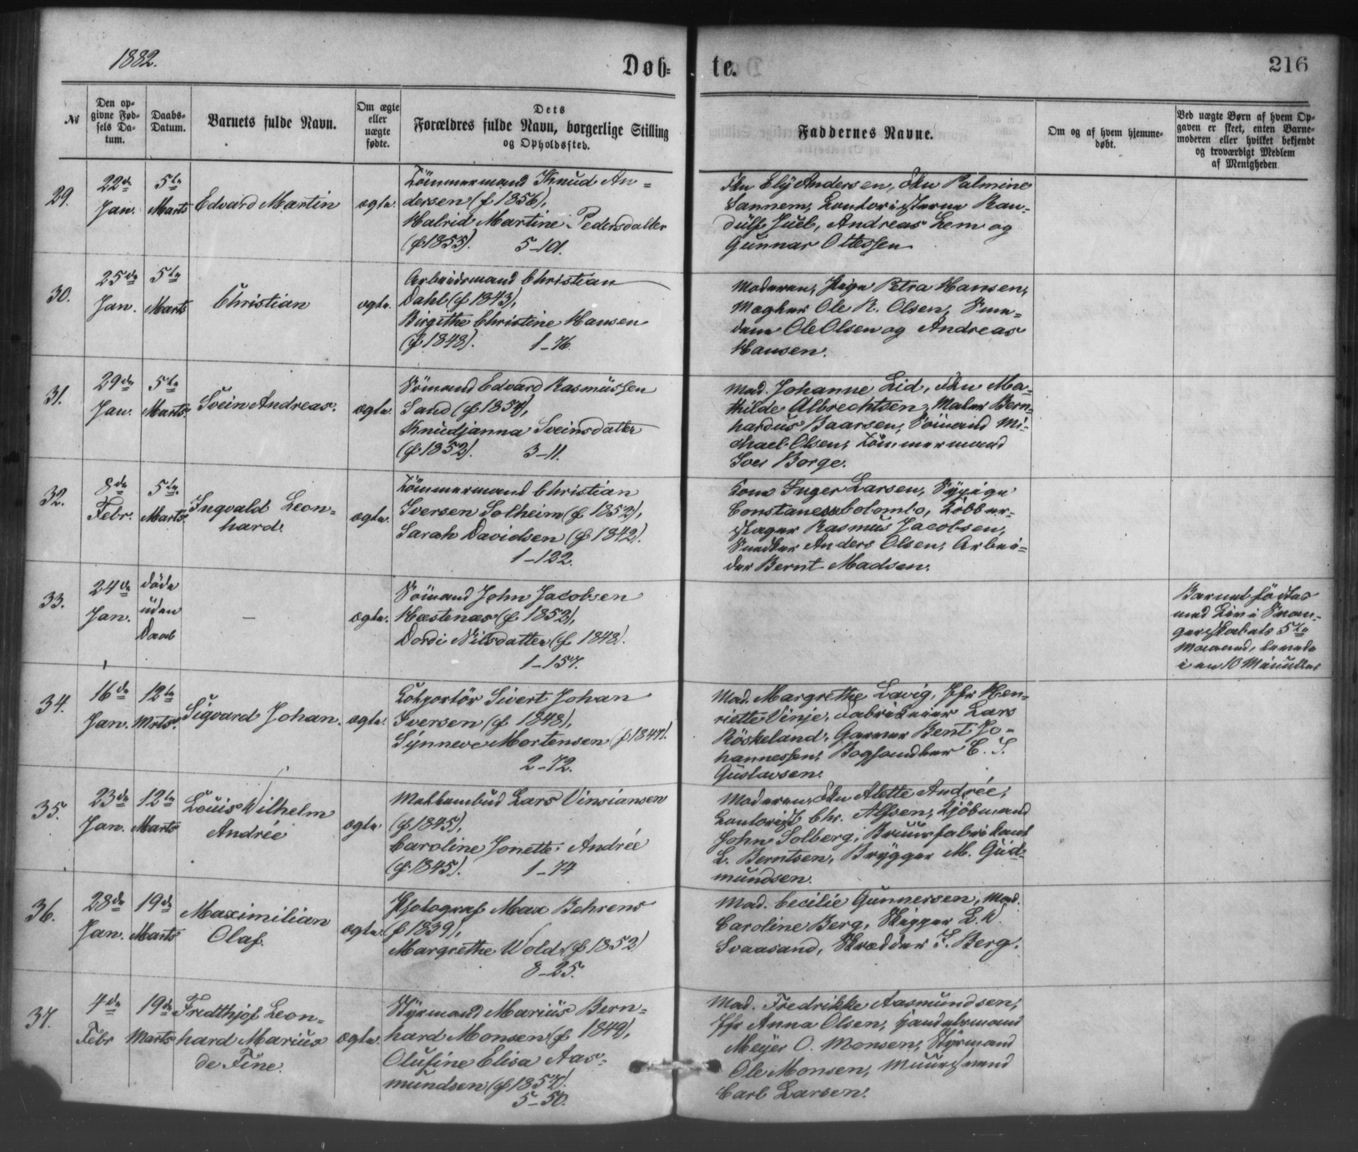 1882.
Døb-
te.
216
№
Den op-
givne Fød-
sels Da-
tum.
Daabs-
Datum.
Barnets fulde Navn.
Om ægte
eller
uægte
fødte.
Dets
Forældres fulde Navn, borgerlige Stilling
og Opholdssted.
Faddernes Navne.
Om og af hvem hjemme-
døbt.
Ved uægte Børn af hvem Op-
gaven er skeet, enten Barne-
moderen eller hvilket bekjendt
og troværdigt Medlem
af Menigheden.
29.
22de
Jan.
5te
Marts
Edvard Martin
ægte.
Tömmermand Knud An-
dersen (f. 1856),
Malrid Martine Pedersdatter
(f. 1855). 5-101.
Fru Ely Andersen, Fru Palmine
Sannem, Kontoristerne Ran-
dulf Juel, Andreas Lem og
Gunnar Ottessen
30.
25de
Jan.
5te
Marts
Christian
ægte.
Arbeidsmand Christian
Dahl (f. 1843),
Birgithe Christine Hansen
(f. 1848). 1-76.
Moderen, Pige Petra Hansen,
Magker Ole R. Olsen,
Ole Olsen og Andreas
Hansen.
31.
29de
Jan.
5te
Marts
Svein Andreas.
ægte.
Sömand Edvard Rasmussen
Sand (f. 1857),
Knudjanna Sveinsdatter
(f. 1852). 3-11.
Mad. Johanne Lid, Fru Ma-
thilde Albrechtsen, Maler Bern-
hardus Baarsen, Sömand Mi-
chael Olsen, Tömmermand
Iver Borge.
32.
8de
Febr.
5te
Marts
Ingvald Leon-
hard.
ægte.
Tömmermand Christian
Iversen Solheim (f. 1852),
Sarah Davidsen (f. 1842).
1-122.
Kone Inger Larsen, Sypige
Constance Colombo, Kobber-
slager Rasmus Jacobsen,
Snedker Anders Olsen, Arbei-
der Bernt Madsen.
33.
24de
Jan.
döde
uden
Daab
—
ægte.
Sömand John Jacobsen
Hestenæs (f. 1852),
Dordi Nilsdatter (f. 1848).
1-157.
Barnet födtes
med Liv i Svan-
gerskabets 5te
Maaned, levede
i en 10 Minutter
34.
16de
Jan.
12te
Mrts.
Sigvard Johan.
ægte.
Kolportör Sivert Johan
Iversen (f. 1848),
Synneve Mortensen (f. 1847).
2-72.
Mad. Margrethe Lavig, Jfr Hen-
riette Vinje, Fabrikeier Lars
Röskeland, Garver Bent Jo-
hannessen, Bogsnedker C. T.
Gustavsen.
35.
23de
Jan.
12te
Marts
Louis Wilhelm
Andrée
ægte
Lars Vinsiansen
(f. 1845),
Caroline Jonette Andrée
(f. 1845). 1-74
Moderen, Fru Alette Andrée,
Kontorist Chr. Alfsen, Kjöbmand
John Solberg, Bruusfabrikant
L. Berntsen, Brygger M. Gud-
mundsen.
36.
28de
Jan.
19de
Marts
Maximilian
Olaf.
ægte.
Photograf Max Behrens
(f. 1839),
Margrethe Wold (f. 1852)
8-25.
Mad. Cecilie Gunnersen, Mad.
Caroline Berg, Skipper L. A.
Svaasand, Skrædder T. Berg.
37.
4de
Febr
19de
Marts
Fredthjof Leon-
hard Marius
de Fine.
ægte.
Styrmand Marius Bern-
hard Monsen (f. 1849),
Olufine Elisa Aas-
mundsen (f. 1857).
5-50.
Mad. Fredrikke Aasmundsen,
Jfr Anna Olsen, Handelsmand
Meyer O. Monsen, Styrmand
Ole Monsen, Muursvend
Carl Larsen.